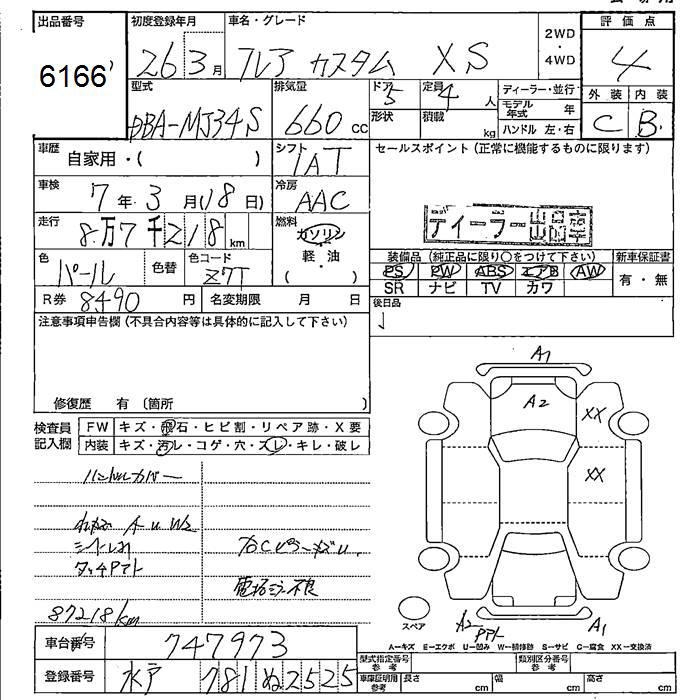 出品番号
6166
初度登録年月
26 3月
車名・グレード
フレア カスタム XS
2WD
・
4WD
評価点
4
型式
DBA-MJ34S
排気量
660 cc
ドア
5
定員
4 人
形状
積載
kg
ディーラー・並行
モデル年式 年
ハンドル 左・右
外装
内装
C
B
車歴
自家用・( )
シフト
IAT
セールスポイント (正常に機能するものに限ります)
車検
7年 3月(18日)
冷房
AAC
ディーラー出品車
走行
8万7千218 km
燃料
ガソリン
軽・油
( )
色
パール
色替
色コード
Z7T
装備品 (純正品に限り○をつけて下さい)
新車保証書
PS PW ABS エアB AW
SR ナビ TV カワ
有・無
R券 8490 円
名変期限 月 日
後日品
注意事項申告欄 (不具合内容等は具体的に記入して下さい)
修復歴 有 (箇所 )
検査員記入欄
FW キズ・飛石・ヒビ割・リペア跡・X要
内装 キズ・汚レ・コゲ・穴・スレ・キレ・破レ
ハンドルカバー
A U W2
87218km
A1
A2
XX
XX
A2
A1
スペア
A-キズ E-エクボ U-凹み W-補修跡 S-サビ C-腐食 XX-交換済
車台番号
747973
登録番号
水戸 781 ぬ 2525
型式指定番号
参考
類別区分番号
参考
車庫証明用
参考
長さ cm
幅 cm
高さ cm